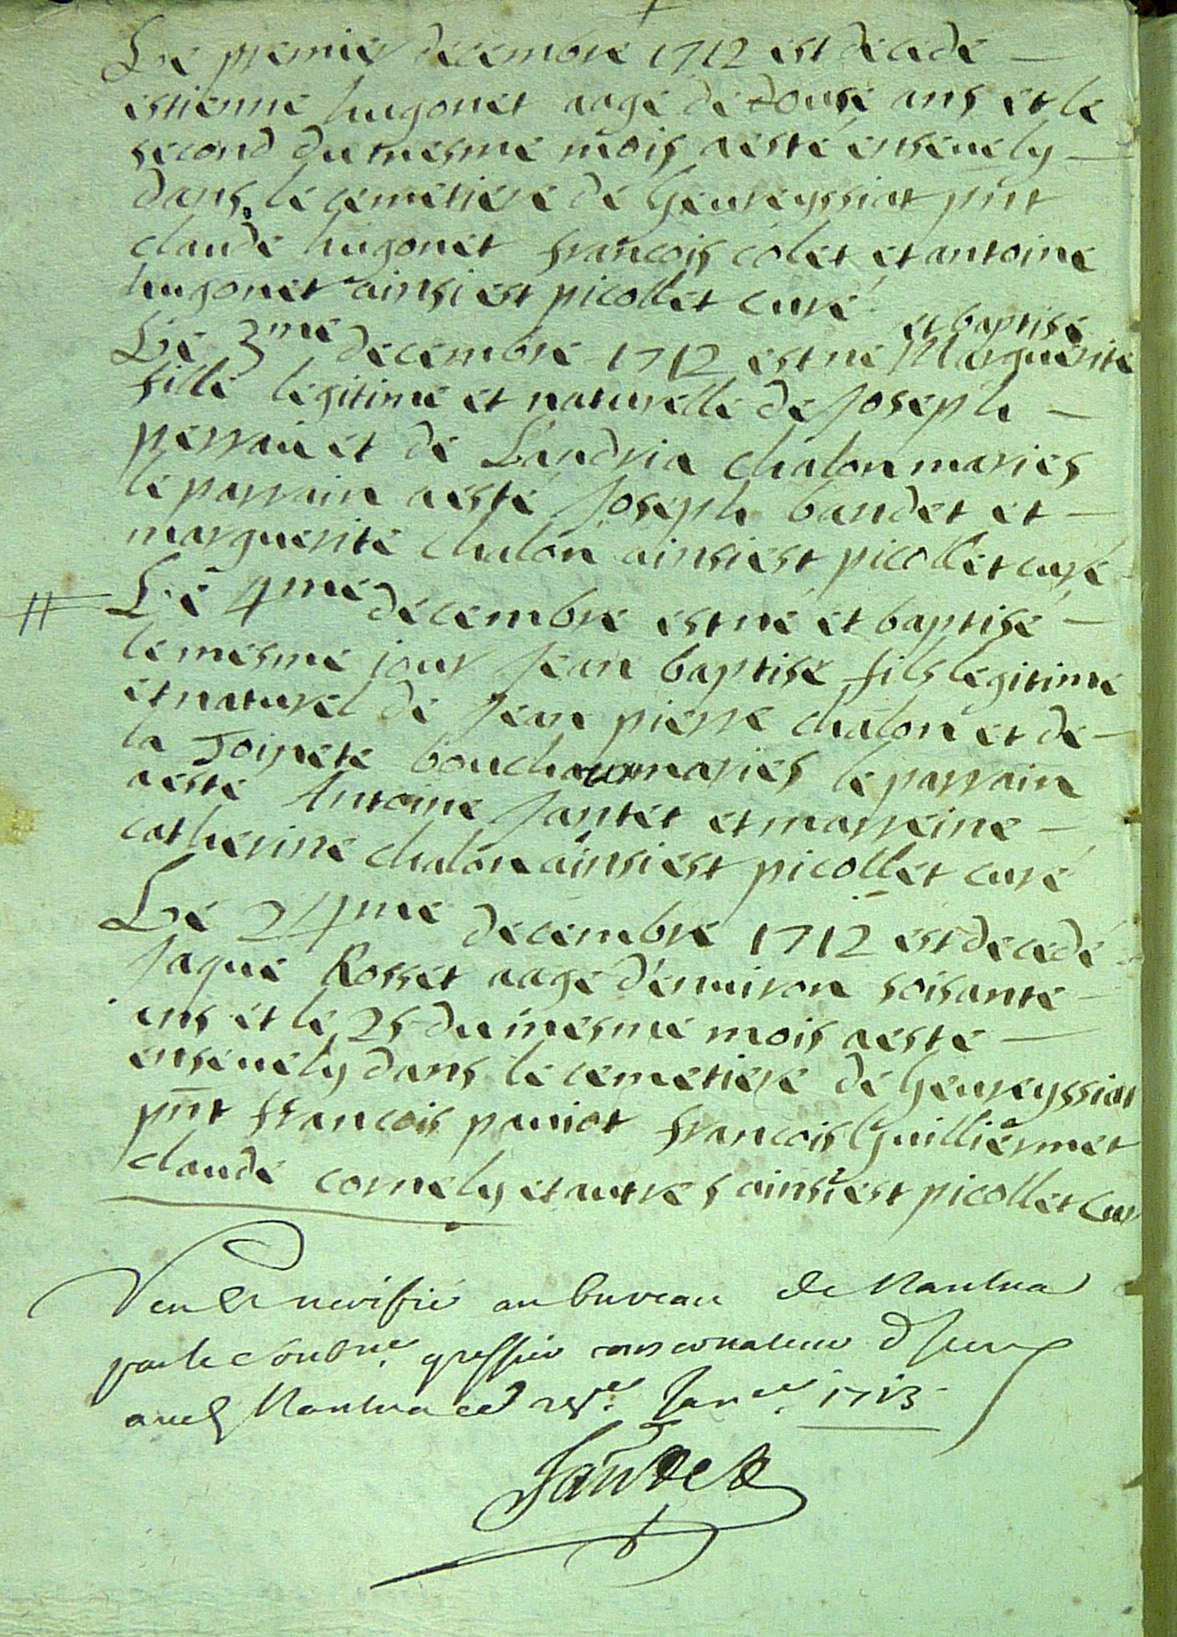 Le premier decembre 1712 est decede
estienne hugonet aagé de douse ans et le
second du mesme mois a esté enseuely
dans le cemetiere de Geureyssiat pnt
claude hugonet francois colet et antoine
hugonet ainsi est picollet curé
et baptisé
Le 3me decembre 1712 est né Marguerite
fille legitime et naturelle de Joseph
perrain et de Landria chalon maries
le parrain a esté Joseph baudet et
marguerite chalon ainsi est picollet curé
Le 4me decembre est né et baptisé
le mesme jour Jean baptise fils legitime
et naturel de Jean pierre chalon et de
la Toinete maries le parrain
a esté Antoine Jantet et marreine
catherine chalon ainsi est picollet curé
Le 24me decembre 1712 est decedé
Jaque Rosset aagé d'enuiron soisante
ans et le 25 du mesme mois a esté
enseuely dans le cemetiere de Geureyssiat
pnt francois pauiot francois Guilliermet
claude cornely et autres ainsi est picollet
Veu & verifié au bureau de Nantua
par le soubne greffier conseruateur
Nantua ce 1713